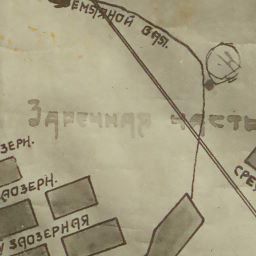 ЕМЛЯНОЙ ВАЛ.
Заречная часть
ЗЕРН.
АОЗЕРН.
ЗАОЗЕРНАЯ
СРЕ